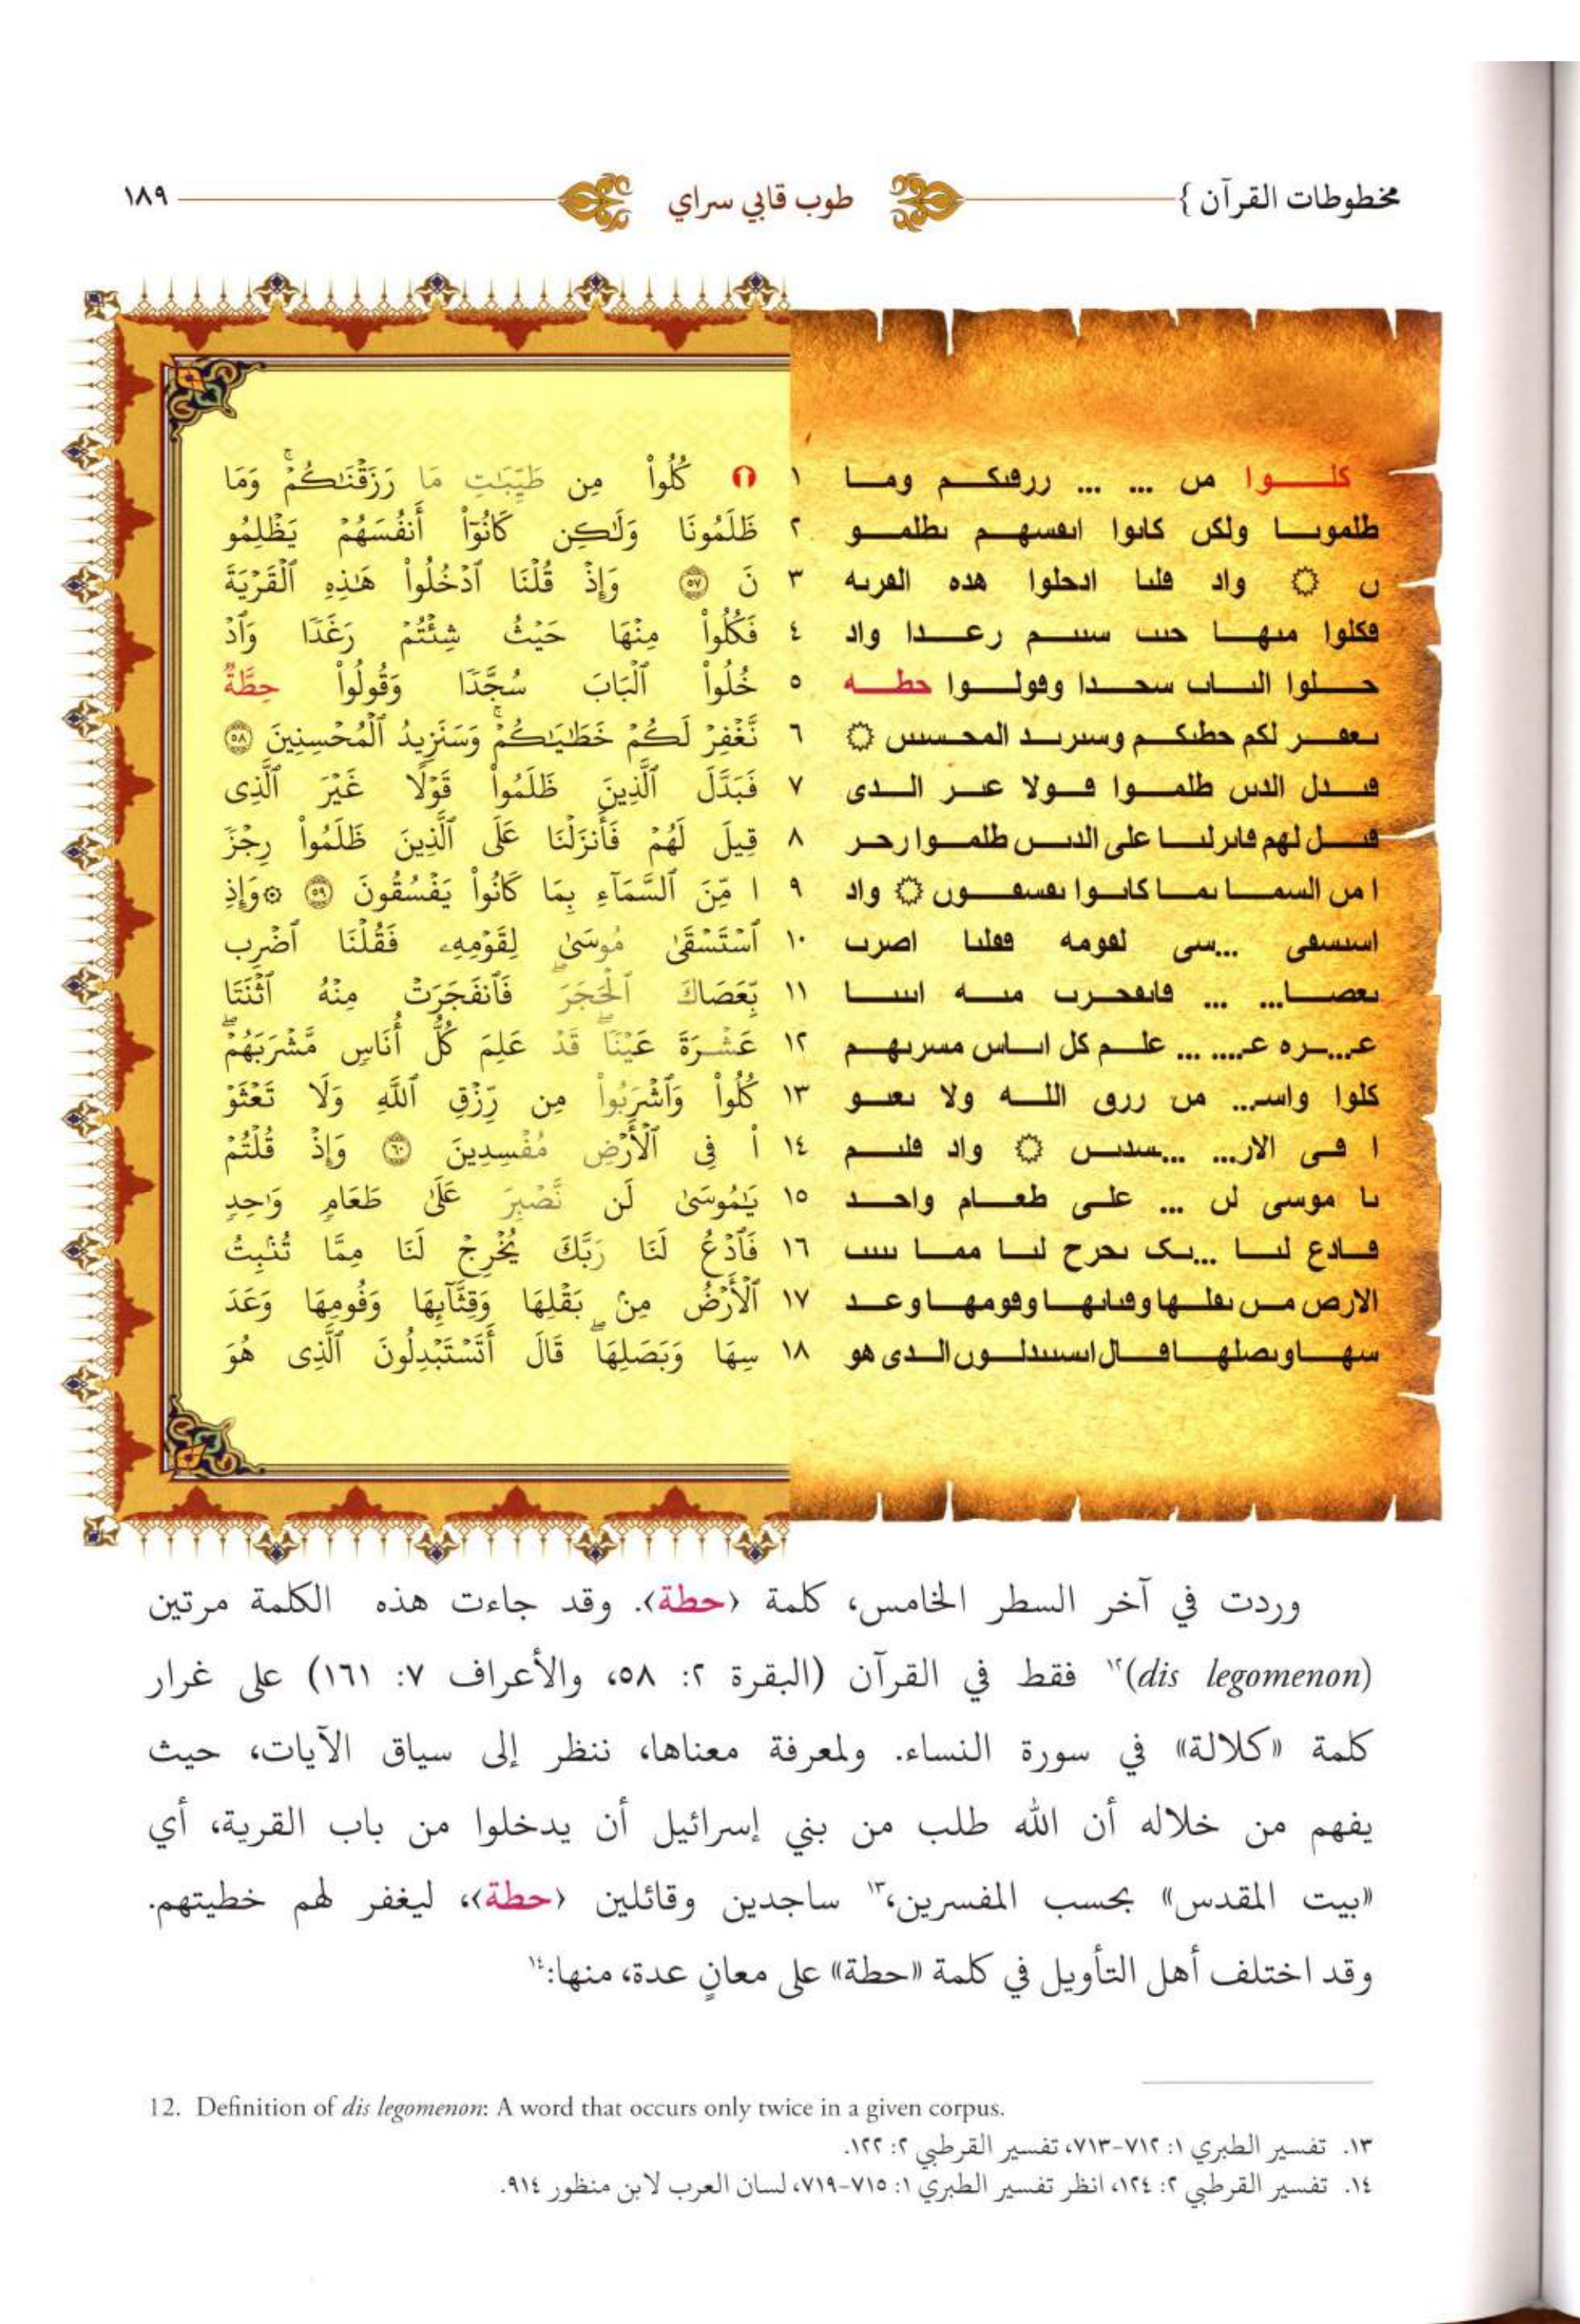 مخطوطات القرآن } طوب قابي سراي ١٨٩
كلـــوا من ... ... ررڡىكم وما ١
طلموىا ولكن كاىوا اىڡسهم ىطلمو ٢
ں ۞ واد ڡلىا ادحلوا هده الڡرىه ٣
ڡكلوا مىها حىٮ سىىم رعدا واد ٤
حلوا الىاٮ سحدا وڡولوا حطه ٥
ىعڡر لكم حطىكم وسىرىد المحسىىں ۞ ٦
ڡىدل الدىں طلموا ڡولا عىر الدى ٧
ڡىل لهم ڡاىرلىا على الدىں طلموا رحر ٨
ا من السما ىما كاىوا ىڡسڡوں ۞ واد ٩
اسىسڡى ...سى لڡومه ڡڡلىا اصرٮ ١٠
ىعصا... ... ڡاىڡحرٮ مىه اىىىا ١١
عـ...ره عـ.... ... علم كل اىاس مسرىهم ١٢
كلوا واسر... من ررٯ الله ولا ىعىو ١٣
ا ڡى الار... ...سدىں ۞ واد ڡلىم ١٤
ىا موسى لں ... على طعام واحد ١٥
ڡادع لىا ...ىک ىحرح لىا مما ىىىٮ ١٦
الارص مں ىڡلها وڡىاىها وڡومها وعد ١٧
سها وىصلها ڡال اىسىىدلوں الدى هو ١٨
١ كُلُوا۟ مِن طَيِّبَـٰتِ مَا رَزَقْنَـٰكُمْ ۚ وَمَا
ظَلَمُونَا وَلَـٰكِن كَانُوٓا۟ أَنفُسَهُمْ يَظْلِمُو
نَ ٥٧ وَإِذْ قُلْنَا ٱدْخُلُوا۟ هَـٰذِهِ ٱلْقَرْيَةَ
فَكُلُوا۟ مِنْهَا حَيْثُ شِئْتُمْ رَغَدًا وَٱدْ
خُلُوا۟ ٱلْبَابَ سُجَّدًا وَقُولُوا۟ حِطَّةٌ
نَّغْفِرْ لَكُمْ خَطَـٰيَـٰكُمْ ۚ وَسَنَزِيدُ ٱلْمُحْسِنِينَ ٥٨
فَبَدَّلَ ٱلَّذِينَ ظَلَمُوا۟ قَوْلًا غَيْرَ ٱلَّذِى
قِيلَ لَهُمْ فَأَنزَلْنَا عَلَى ٱلَّذِينَ ظَلَمُوا۟ رِجْزً
ا مِّنَ ٱلسَّمَآءِ بِمَا كَانُوا۟ يَفْسُقُونَ ٥٩ ۞ وَإِذِ
ٱسْتَسْقَىٰ مُوسَىٰ لِقَوْمِهِۦ فَقُلْنَا ٱضْرِب
بِّعَصَاكَ ٱلْحَجَرَ ۖ فَٱنفَجَرَتْ مِنْهُ ٱثْنَتَا
عَشْرَةَ عَيْنًا ۖ قَدْ عَلِمَ كُلُّ أُنَاسٍ مَّشْرَبَهُمْ ۖ
كُلُوا۟ وَٱشْرَبُوا۟ مِن رِّزْقِ ٱللَّهِ وَلَا تَعْثَوْ
ا۟ فِى ٱلْأَرْضِ مُفْسِدِينَ ٦٠ وَإِذْ قُلْتُمْ
يَـٰمُوسَىٰ لَن نَّصْبِرَ عَلَىٰ طَعَامٍ وَٰحِدٍ
فَٱدْعُ لَنَا رَبَّكَ يُخْرِجْ لَنَا مِمَّا تُنۢبِتُ
ٱلْأَرْضُ مِنۢ بَقْلِهَا وَقِثَّآئِهَا وَفُومِهَا وَعَدَ
سِهَا وَبَصَلِهَا ۖ قَالَ أَتَسْتَبْدِلُونَ ٱلَّذِى هُوَ
وردت في آخر السطر الخامس، كلمة ‹حطة›. وقد جاءت هذه الكلمة مرتين
(dis legomenon)١٢ فقط في القرآن (البقرة ٢: ٥٨، والأعراف ٧: ١٦١) على غرار
كلمة «كلالة» في سورة النساء. ولمعرفة معناها، ننظر إلى سياق الآيات، حيث
يفهم من خلاله أن الله طلب من بني إسرائيل أن يدخلوا من باب القرية، أي
«بيت المقدس» بحسب المفسرين،١٣ ساجدين وقائلين ‹حطة›، ليغفر لهم خطيتهم.
وقد اختلف أهل التأويل في كلمة «حطة» على معانٍ عدة، منها:١٤
12. Definition of dis legomenon: A word that occurs only twice in a given corpus.
١٣. تفسير الطبري ١: ٧١٢-٧١٣، تفسير القرطبي ٢: ١٢٢.
١٤. تفسير القرطبي ٢: ١٢٤، انظر تفسير الطبري ١: ٧١٥-٧١٩، لسان العرب لابن منظور ٩١٤.